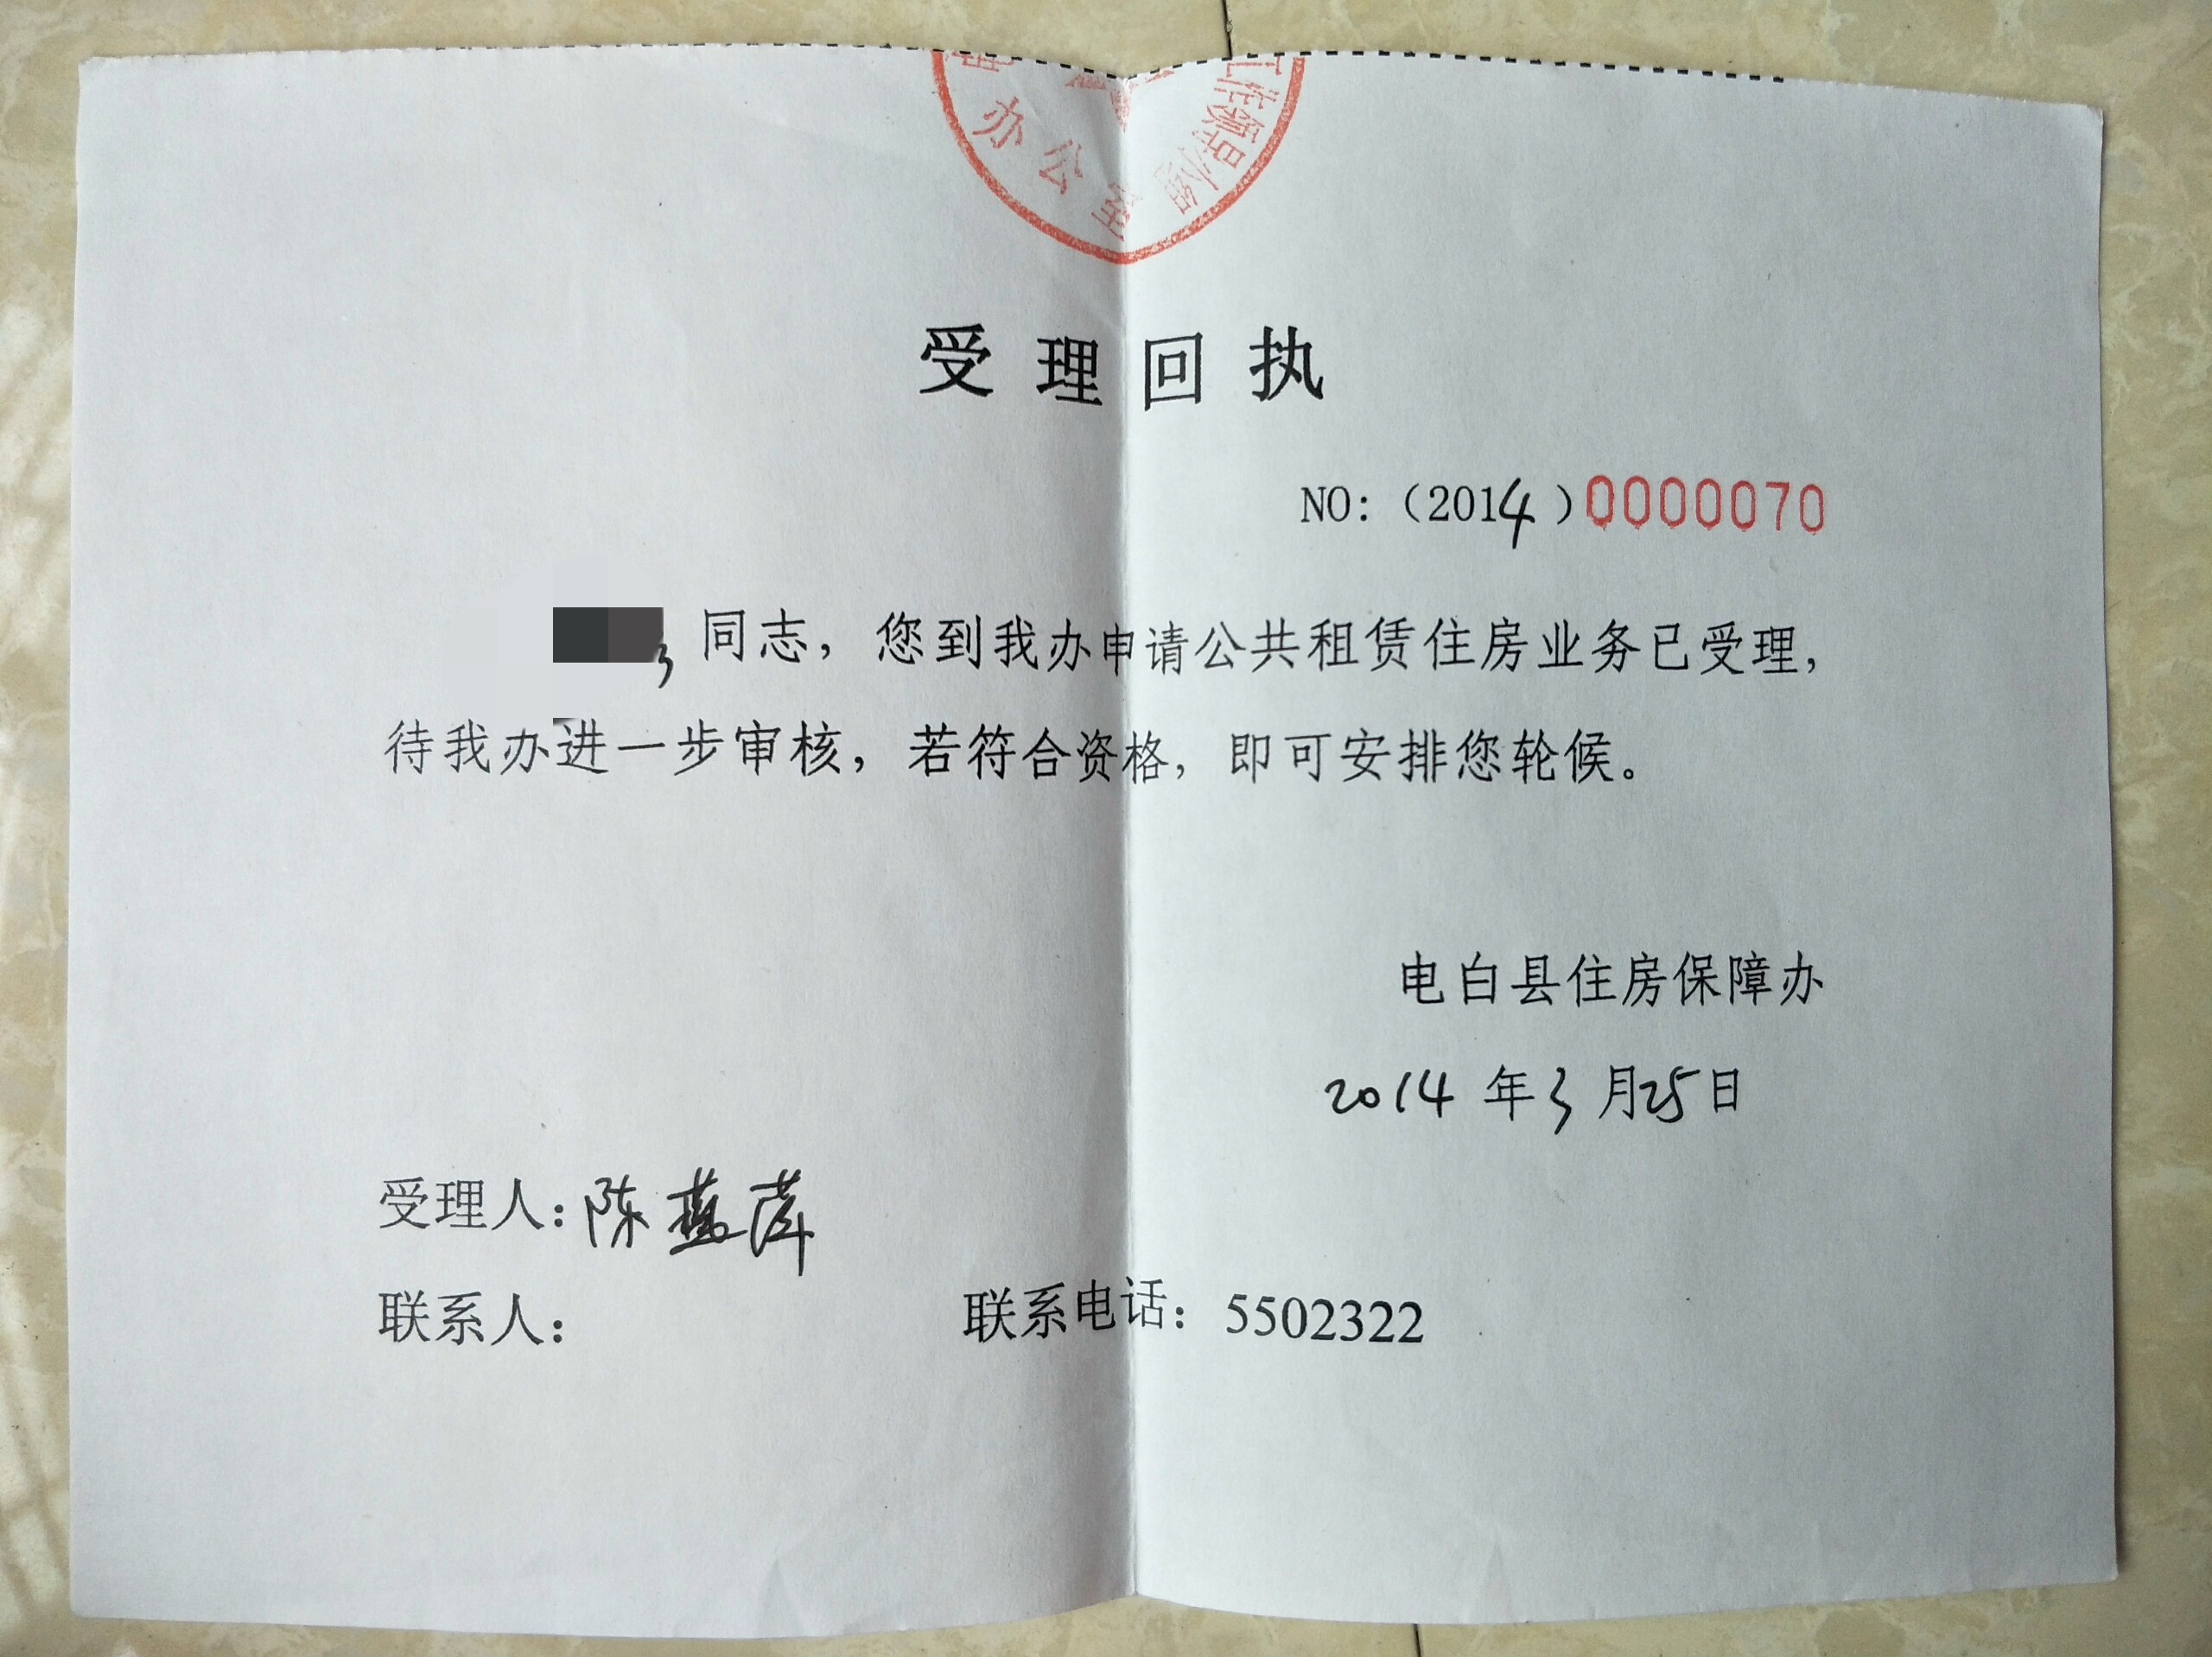 办公室
工作领导小组
受理回执
NO:（2014）0000070
同志，您到我办申请公共租赁住房业务已受理，
待我办进一步审核，若符合资格，即可安排您轮候。
电白县住房保障办
2014年3月25日
受理人：陈燕萍
联系人：　联系电话：5502322